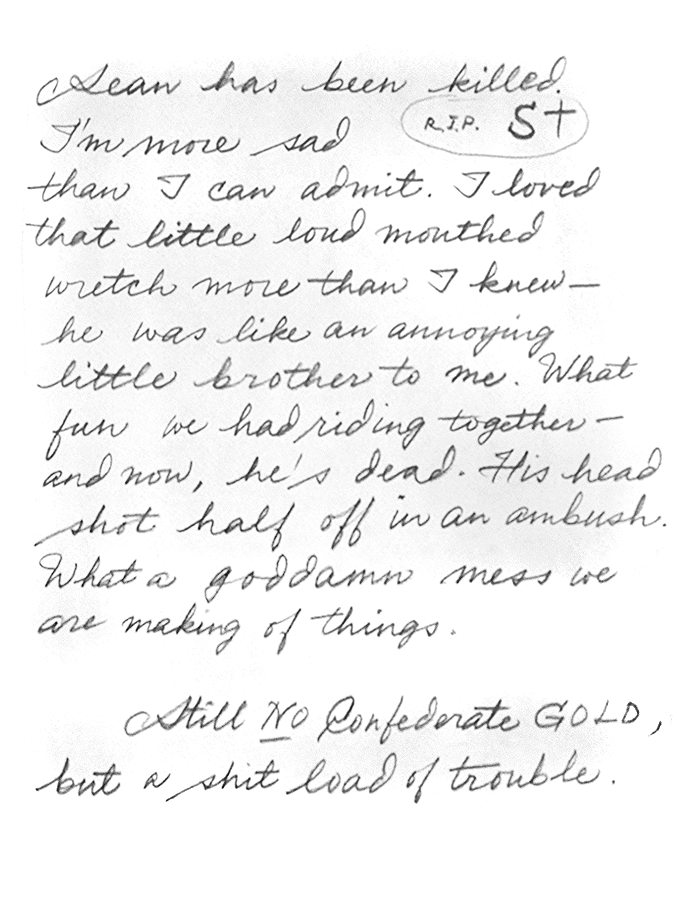 Sean has been killed.
R.I.P. S†
I'm more sad
than I can admit. I loved
that little loud mouthed
wretch more than I knew—
he was like an annoying
little brother to me. What
fun we had riding together—
and now, he's dead. His head
shot half off in an ambush.
What a goddamn mess we
are making of things.
Still NO Confederate GOLD,
but a shit load of trouble.